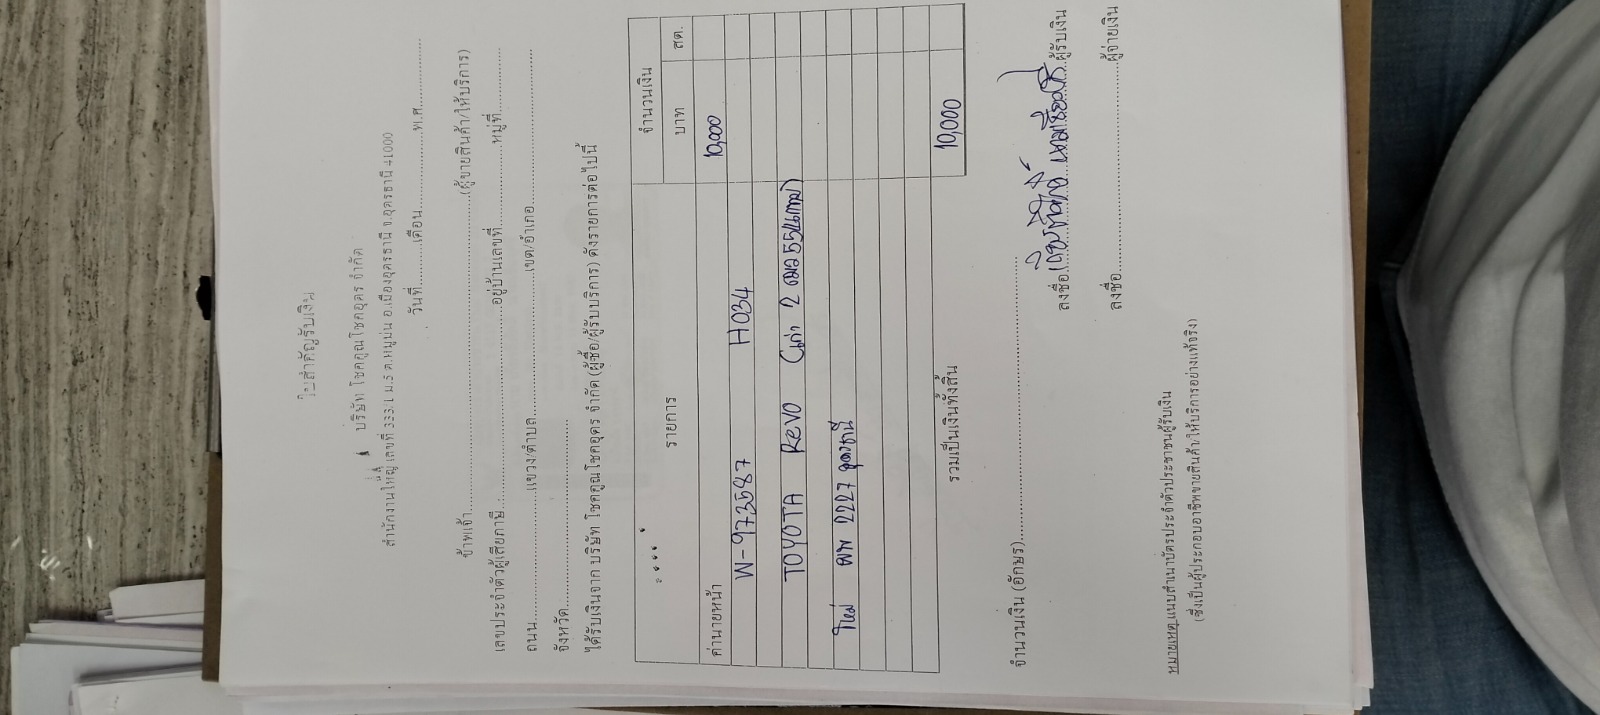 ใบสำคัญรับเงิน
บริษัท โชคคูณโชคอุดร จำกัด
สำนักงานใหญ่ เลขที่ 333/1 ม.5 ต.หมูม่น อ.เมืองอุดรธานี จ.อุดรธานี 41000
วันที่............เดือน......................พ.ศ.............
ข้าพเจ้า......................................................................(ผู้ขายสินค้า/ให้บริการ)
เลขประจำตัวผู้เสียภาษี.............................................อยู่บ้านเลขที่..................หมู่ที่...............
ถนน........................แขวง/ตำบล...............................เขต/อำเภอ...............................
จังหวัด...............................
ได้รับเงินจาก บริษัท โชคคูณโชคอุดร จำกัด (ผู้ซื้อ/ผู้รับบริการ) ดังรายการต่อไปนี้
รายการ จำนวนเงิน
บาท สต.
ค่านายหน้า 10,000
W-973587 H034
TOYOTA Revo (เก่า 2
ใหม่ ผพ 2227 อุดรธานี
รวมเป็นเงินทั้งสิ้น 10,000
จำนวนเงิน (อักษร)............................................................
ลงชื่อ ผู้รับเงิน
ลงชื่อ........................................ผู้จ่ายเงิน
หมายเหตุ แนบสำเนาบัตรประจำตัวประชาชนผู้รับเงิน
(ซึ่งเป็นผู้ประกอบอาชีพขายสินค้า/ให้บริการอย่างแท้จริง)